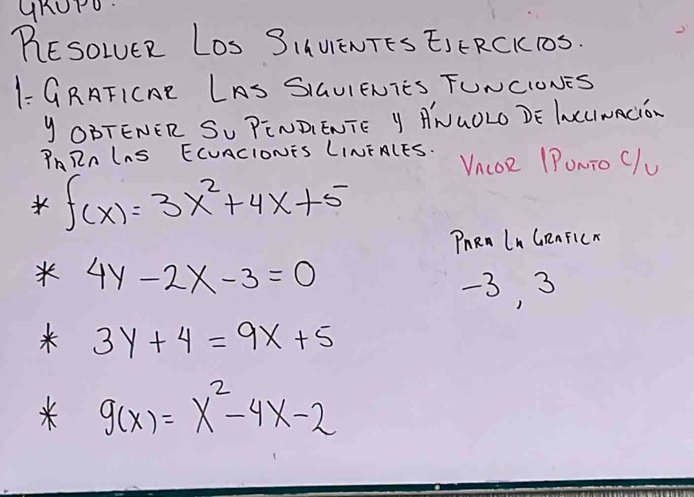 GRUPO:
RESOLVER LOS SIGUIENTES EJERCICIOS.
1.- GRAFICAR LAS SIGUIENTES FUNCIONES
Y OBTENER SU PENDIENTE Y ÁNGULO DE INCLINACIÓN
PARA LAS ECUACIONES LINEALES.
VALOR 1 PUNTO C/U
* f(x) = 3x² + 4x + 5
PARA LA GRAFICA
-3, 3
* 4Y - 2X - 3 = 0
* 3Y + 4 = 9X + 5
* g(x) = x² - 4x - 2